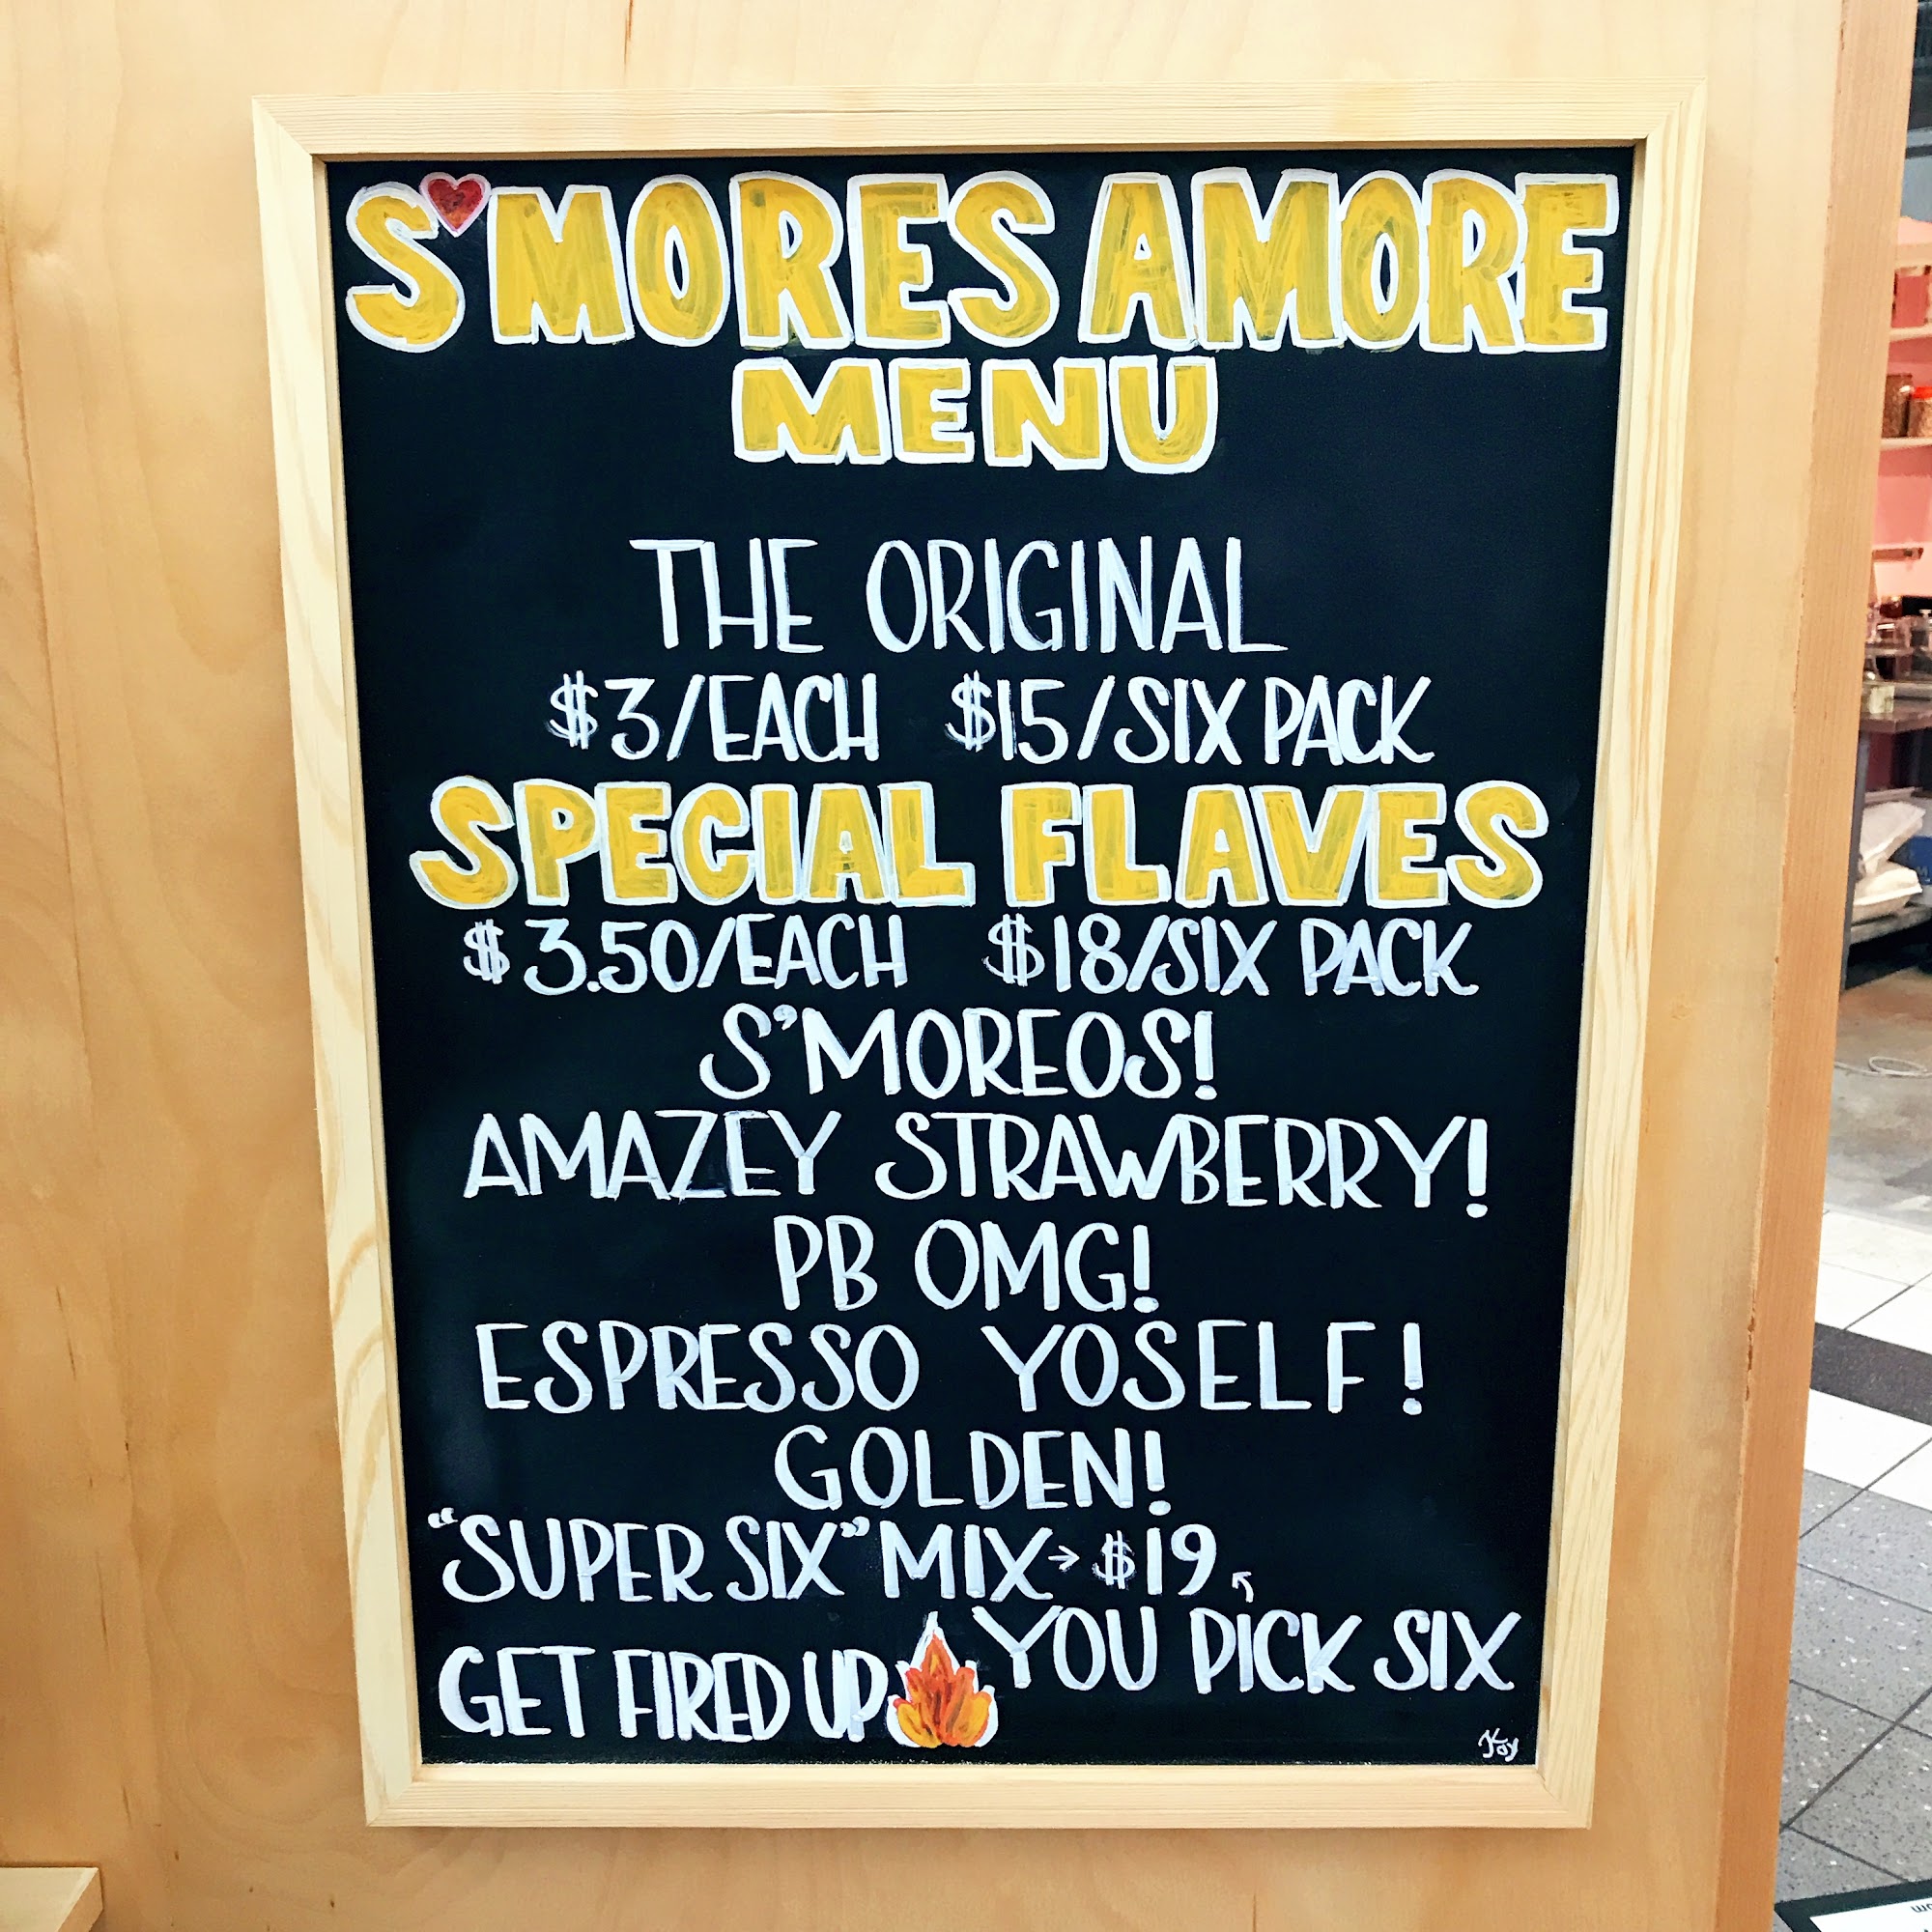 S'MORES AMORE
MENU
THE ORIGINAL
$3/EACH $15/SIX PACK
SPECIAL FLAVES
$3.50/EACH $18/SIX PACK
S'MOREOS!
AMAZEY STRAWBERRY!
PB OMG!
ESPRESSO YOSELF!
GOLDEN!
"SUPER SIX" MIX → $19
YOU PICK SIX
GET FIRED UP